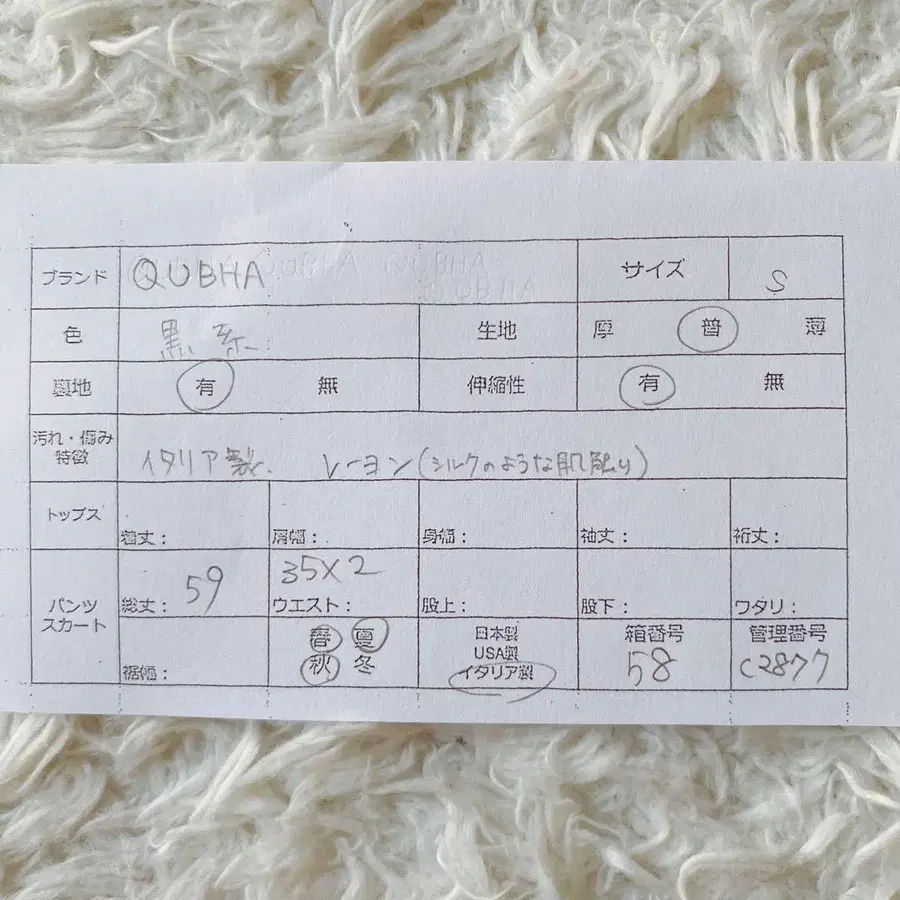 ブランド QUBHA サイズ S
色 黒系 生地 厚 普 薄
裏地 有 無 伸縮性 有 無
汚れ・傷み
特徴 イタリア製 レーヨン(シルクのような肌触り)
トップス 着丈: 肩幅: 身幅: 袖丈: 裄丈:
パンツ
スカート 総丈: 59 35×2 ウエスト: 股上: 股下: ワタリ:
裾幅: 春 夏
秋 冬
日本製
USA製
イタリア製
箱番号
58
管理番号
C2877